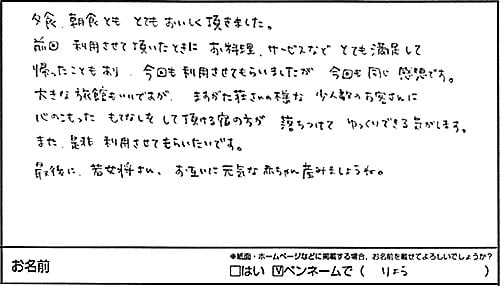 夕食、朝食とも とてもおいしく頂きました。
前回 利用させて頂いたときに お料理、サービスなど とても満足して
帰ったこともあり、今回も利用させてもらいましたが 今回も同じ感想です。
大きな旅館もいいですが、まさがた荘さんの様な 少人数のお客さんに
心のこもった もてなしをして頂ける宿の方が 落ちつけて ゆっくりできる気がします。
また、是非 利用させてもらいたいです。
最後に、若女将さん、お互いに元気な赤ちゃん産みましょうね。
お名前
※紙面・ホームページなどに掲載する場合、お名前を載せてよろしいでしょうか?
□はい ☑ペンネームで ( りょう )